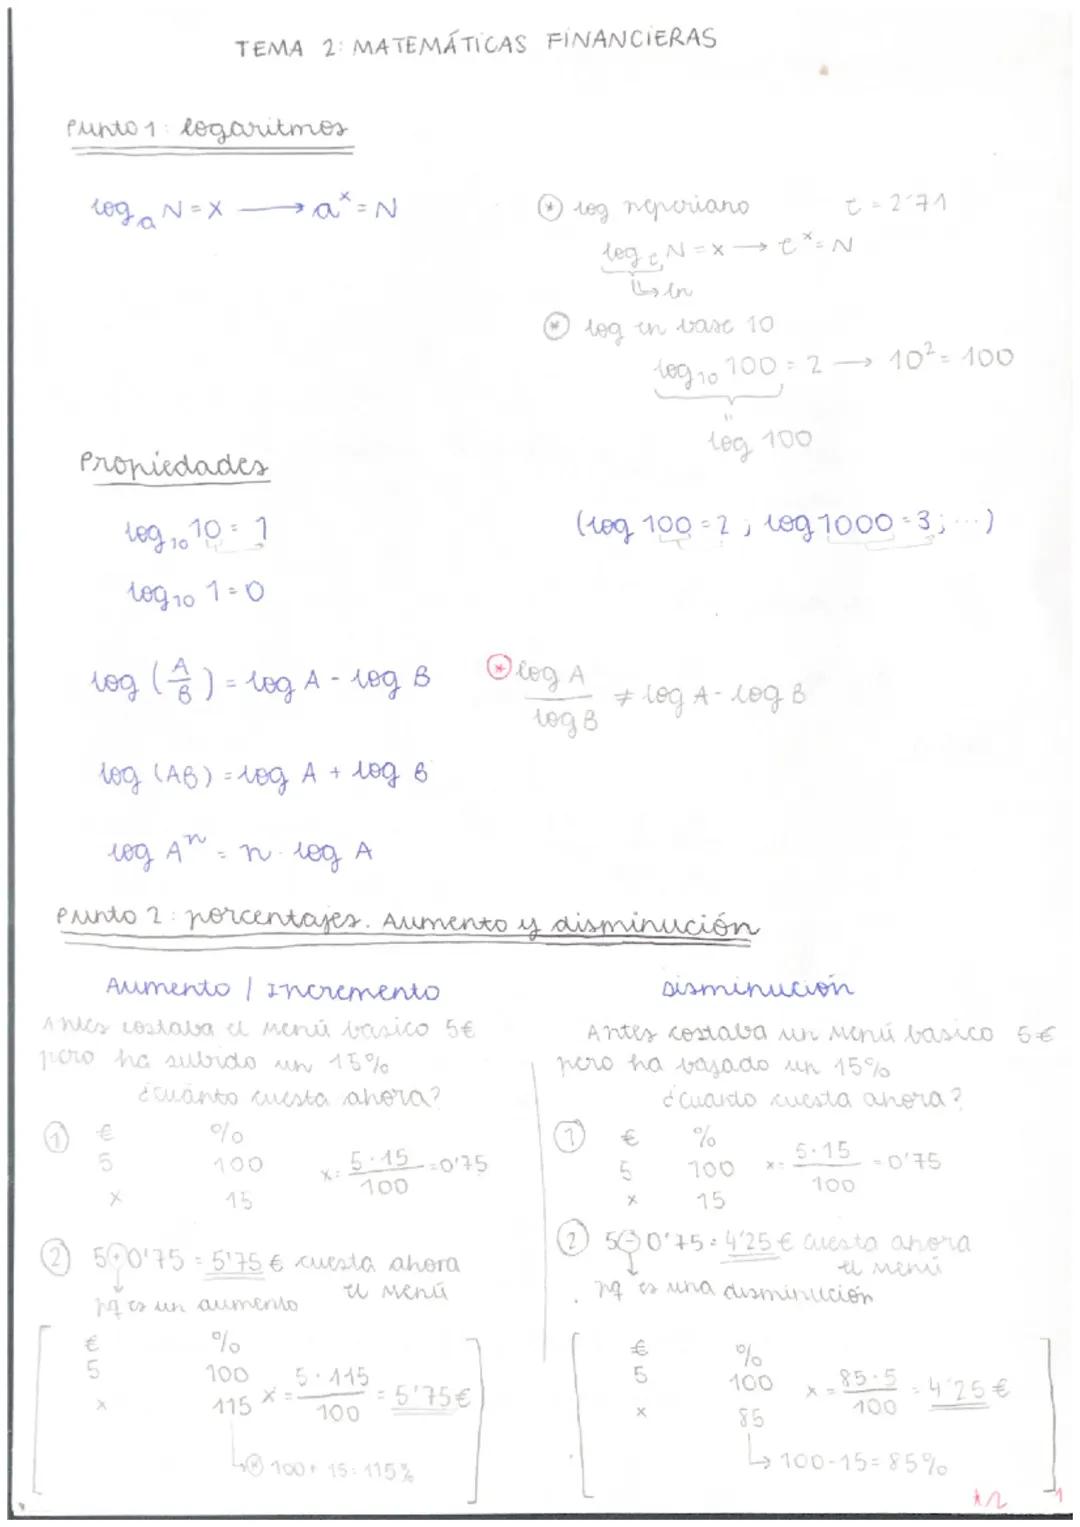 TEMA 2: MATEMÁTICAS FINANCIERAS
Punto 1: logaritmos
logₐ N = x ⟶ aˣ = N
* log neperiano e = 2'71
logₑ N = x ⟶ eˣ = N
↳ ln
* log en base 10
log₁₀ 100 = 2 ⟶ 10² = 100
"
log 100
Propiedades
log₁₀ 10 = 1 (log 100 = 2 ; log 1000 = 3; ...)
log₁₀ 1 = 0
log (A/B) = log A - log B * log A / log B ≠ log A - log B
log (AB) = log A + log B
log Aⁿ = n · log A
Punto 2: porcentajes. Aumento y disminución
Aumento / Incremento
Antes costaba el menú básico 5€
pero ha subido un 15%
¿cuánto cuesta ahora?
① € %
5 100 x = 5·15/100 = 0'75
x 15
② 5 + 0'75 = 5'75 € cuesta ahora
el menú
↓
pq es un aumento
€ %
5 100
x 115 x = 5·115/100 = 5'75€
↳ * 100 + 15 = 115%
Disminución
Antes costaba un menú basico 5€
pero ha bajado un 15%
¿Cuanto cuesta ahora?
① € %
5 100 x = 5·15/100 = 0'75
x 15
② 5 - 0'75 = 4'25 € cuesta ahora
el menú
↓
pq es una disminución
€ %
5 100 x = 85·5/100 = 4'25€
x 85
↳ 100-15 = 85%
1